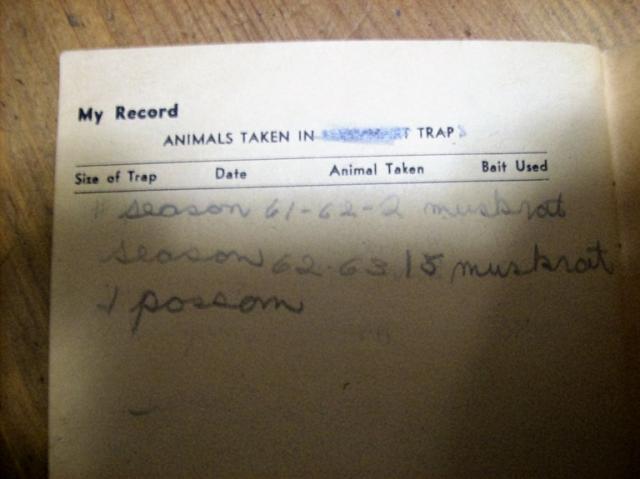 My Record
ANIMALS TAKEN IN TRAPS
Size of Trap Date Animal Taken Bait Used
season 61-62-2 muskrat
season 62-63 15 muskrat
1 possom